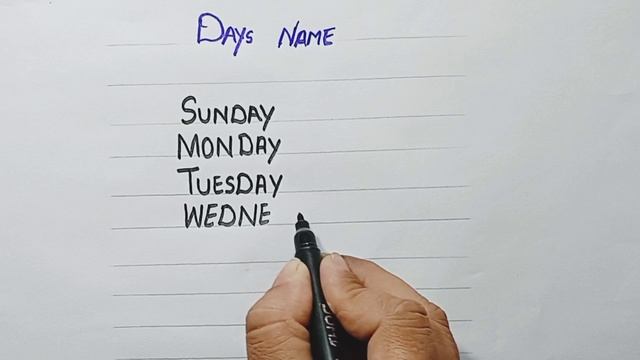 Days Name
Sunday
Monday
Tuesday
Wedne